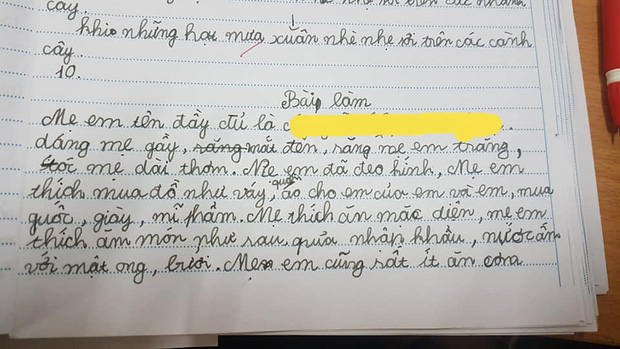 cây.
khi những hạt mưa xuân nhè nhẹ rơi trên các cành
cây.
10.
Bài làm
Mẹ em tên đầy đủ là
dáng mẹ gầy, răng mái đen, răng mẹ em trắng,
tóc mẹ dài thơm. Mẹ em đã đeo kính, Mẹ em
thích mua đồ như váy, quần áo cho em của em và em, mua
guốc, giày, mĩ phẩm. Mẹ thích ăn mặc diện, mẹ em
thích ăm món như sau quủa nhập khẩu, nước ấm
với mật ong, bưởi. Mẹ em cũng rất ít ăn cơm